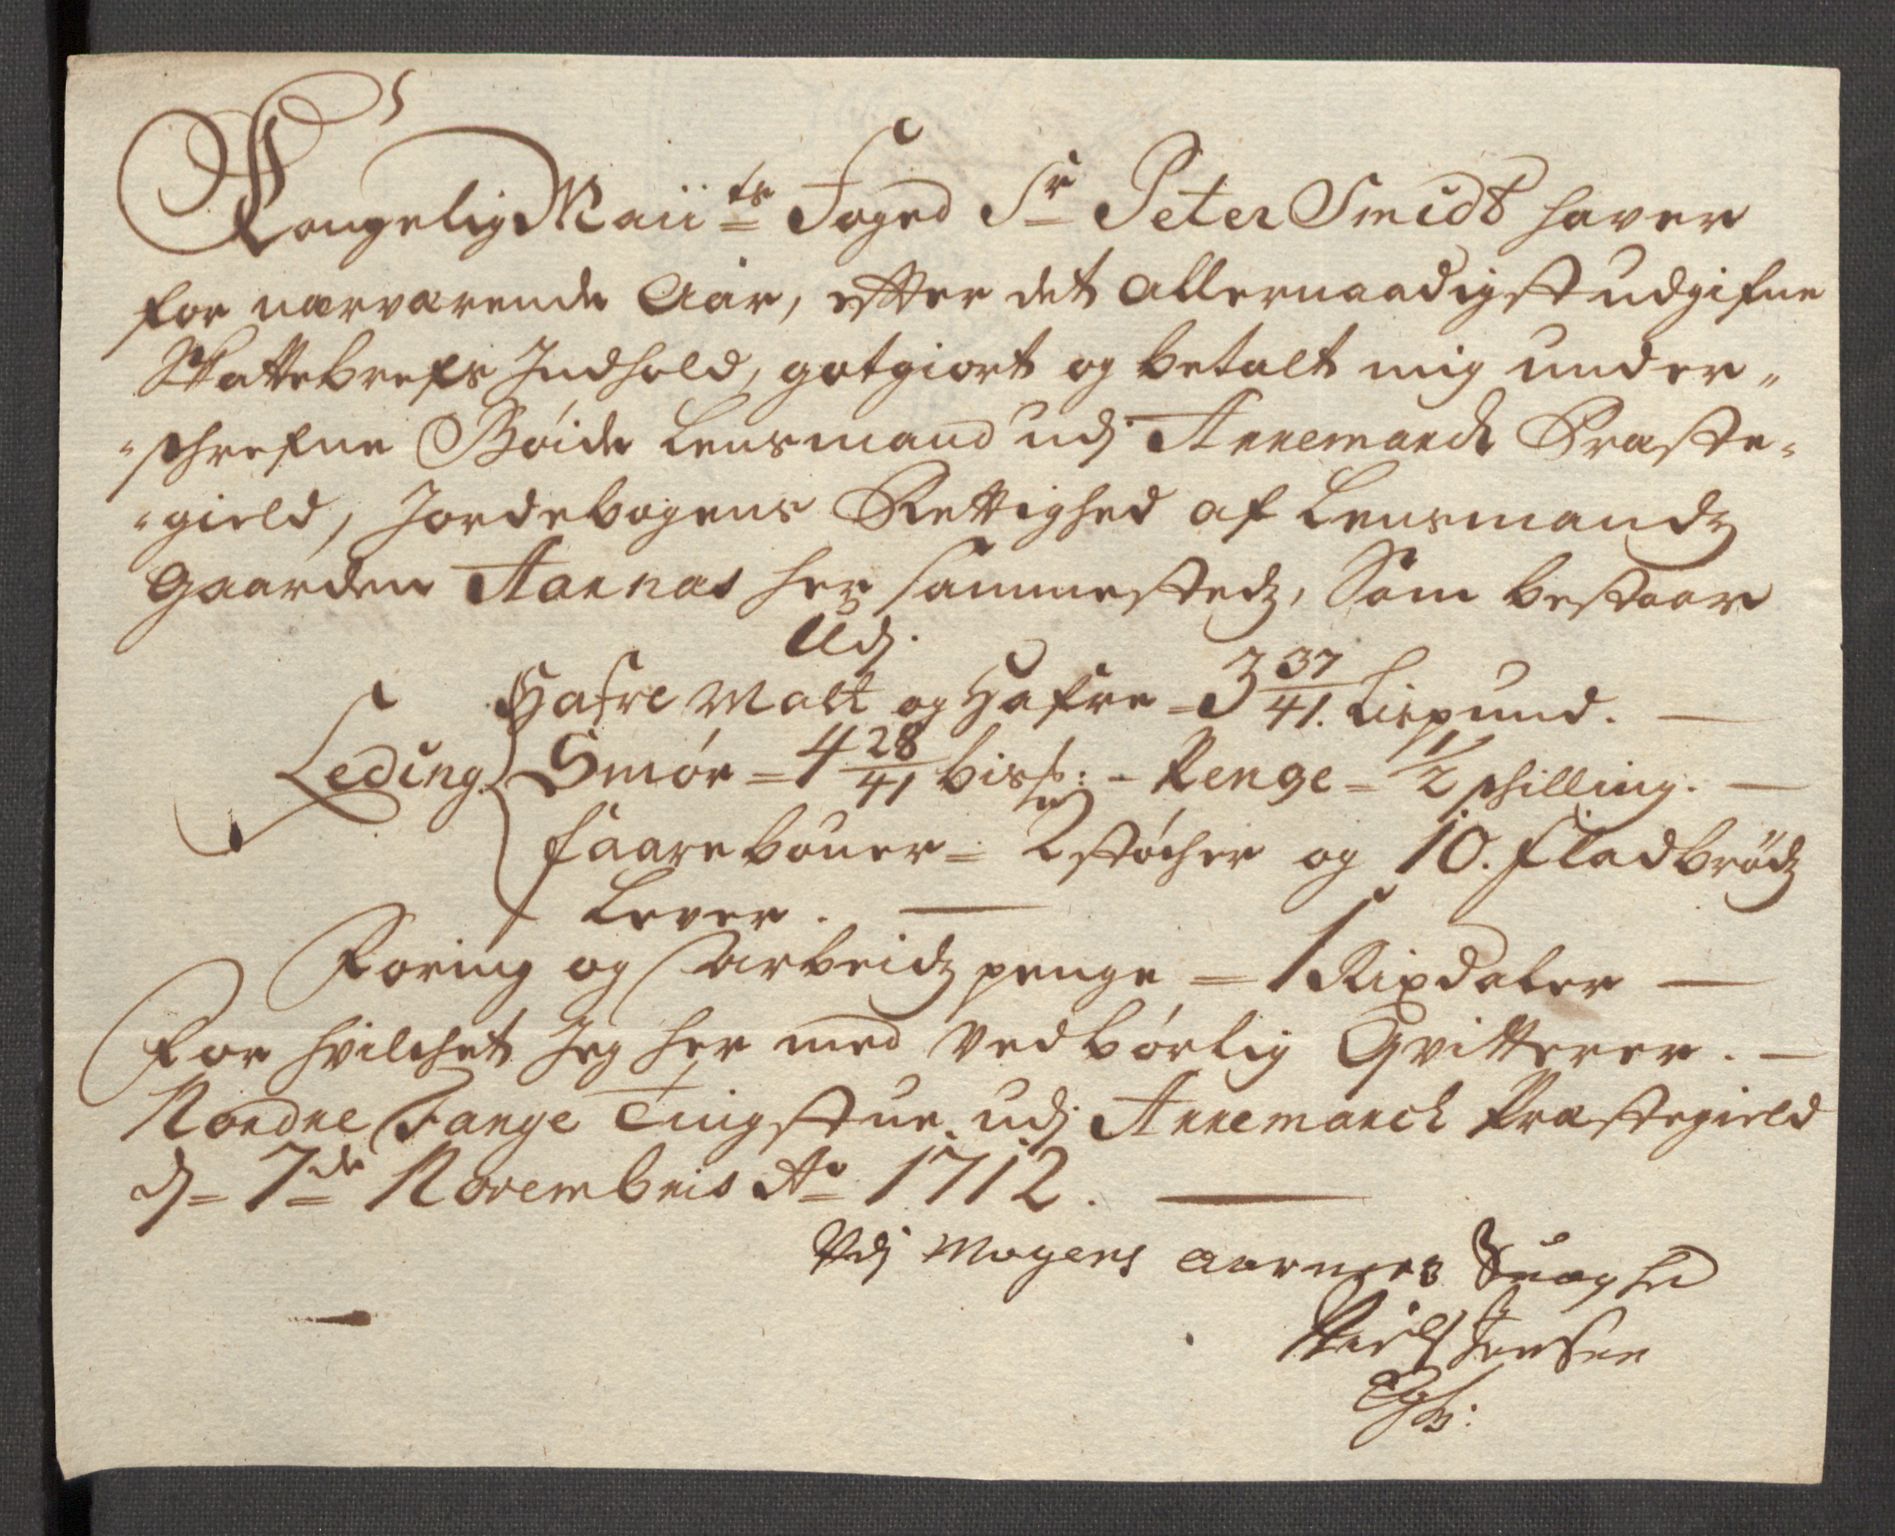 Kongelig Maii<sup>ts</sup> Foged S<sup>r</sup> Peter Smidt haver
for nærværende Aar, effter det allernaadigst udgifne
Skattebrefs Indhold, gotgiort og betalt mig under„
„schrefne Bøide Lensmand udj Arnemarch Præste„
„gield, Jordebogens Rettighed af Lensmandz
gaarden Aarnas her sammestedz, Som bestaar
Udj.
Hafre Malt og Hafre = 3 37/41. Lispund. —
Leding. Smør = 4 28/41 bis℔: - Penge = 1/2 schilling. —
Faarebouer = 2 støcher og 10. Fladbrødz
Lever. —
Foring og arbeidz penge = 1 Rixdaler —
For hvilchet Jeg her med vedbørlig Qvitterer. —
Nordre Fange Tingstue udj Arnemarch Præstegield
dj = 7<sup>de</sup> Novembris A<sup>o</sup> 1712. —
Mogens Aarnes
Niels Jensen